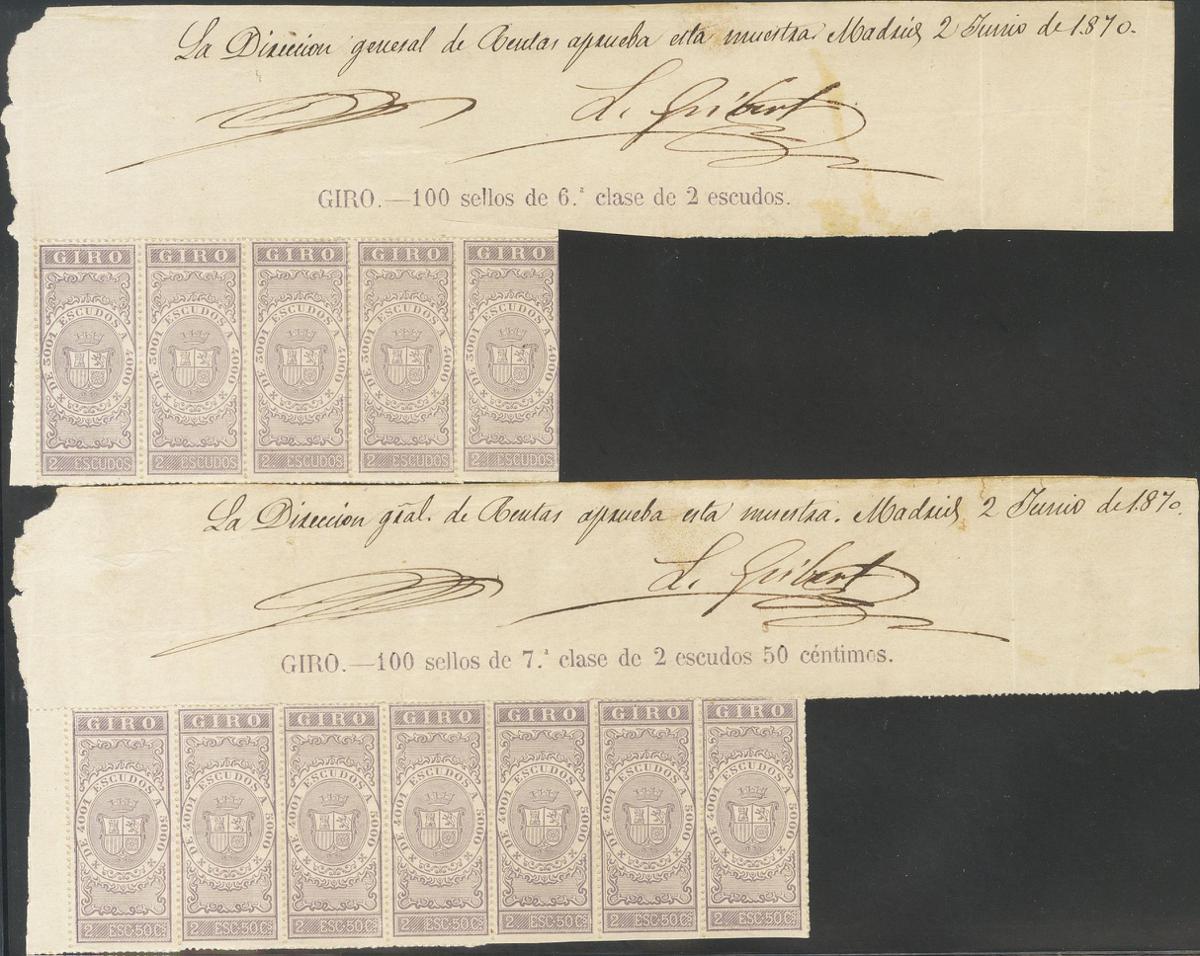 La Direccion general de Rentas aprueba esta muestra. Madrid 2 Junio de 1.870.
L. Gribert
GIRO.—100 sellos de 6.ª clase de 2 escudos.
GIRO GIRO GIRO GIRO GIRO
DE 3001 ESCUDOS A 4000 DE 3001 ESCUDOS A 4000 DE 3001 ESCUDOS A 4000 DE 3001 ESCUDOS A 4000 DE 3001 ESCUDOS A 4000
2 ESCUDOS 2 ESCUDOS 2 ESCUDOS 2 ESCUDOS 2 ESCUDOS
La Direccion gral. de Rentas aprueba esta muestra. Madrid 2 Junio de 1.870.
L. Gribert
GIRO.—100 sellos de 7.ª clase de 2 escudos 50 céntimos.
GIRO GIRO GIRO GIRO GIRO GIRO GIRO
DE 4001 ESCUDOS A 5000 DE 4001 ESCUDOS A 5000 DE 4001 ESCUDOS A 5000 DE 4001 ESCUDOS A 5000 DE 4001 ESCUDOS A 5000 DE 4001 ESCUDOS A 5000 DE 4001 ESCUDOS A 5000
2 ESC·50Cs 2 ESC·50Cs 2 ESC·50Cs 2 ESC·50Cs 2 ESC·50Cs 2 ESC·50Cs 2 ESC·50Cs